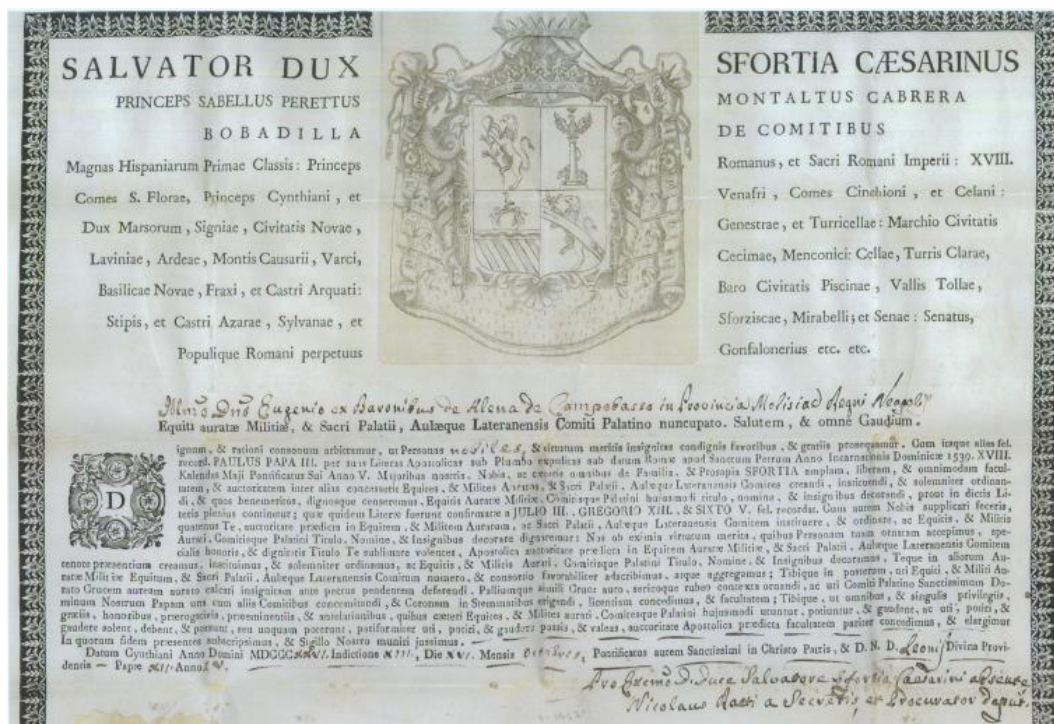 SALVATOR DUX
PRINCEPS SABELLUS PERETTUS
BOBADILLA
Magnas Hispaniarum Primae Classis: Princeps
Comes S. Florae, Princeps Cynthiani, et
Dux Marsorum, Signiae, Civitatis Novae,
Laviniae, Ardeae, Montis Causarii, Varci,
Basilicae Novae, Fraxi, et Castri Arquati:
Stipis, et Castri Azarae, Sylvanae, et
Populique Romani perpetuus
SFORTIA CÆSARINUS
MONTALTUS CABRERA
DE COMITIBUS
Romanus, et Sacri Romani Imperii: XVIII.
Venafri, Comes Cinchioni, et Celani:
Genestrae, et Turricellae: Marchio Civitatis
Cecimae, Menconici: Cellae, Turris Clarae,
Baro Civitatis Piscinae, Vallis Tollae,
Sforziscae, Mirabelli; et Senae: Senatus,
Gonfalonerius etc. etc.
Illmo Dno Eugenio ex Baronibus de Alena de Campobasso in Provincia Molisiae Regni Neapolis
Equiti auratæ Militiæ, & Sacri Palatii, Aulæque Lateranensis Comiti Palatino nuncupato. Salutem, & omne Gaudium.
Dignum, & rationi consonum arbitramur, ut Personas nobiles, & virtutum meritis insignitas condignis favoribus, & gratiis prosequamur. Cum itaque alias fel.
record. PAULUS PAPA III. per suas Literas Apostolicas sub Plumbo expeditas sub datum Romæ apud Sanctum Petrum Anno Incarnationis Dominicæ 1539. XVIII.
Kalendas Maji Pontificatus Sui Anno V. Majoribus nostris, Nobis, ac ceteris omnibus de Familia, & Prosapia SFORTIA amplam, liberam, & omnimodam facul-
tatem, & auctoritatem inter alias concesserit Equites, & Milites Auratos, & Sacri Palatii, Aulæque Lateranensis Comites creandi, instituendi, & solemniter ordinan-
di, & que benemeritos, dignosque censeremus, Equitis Auratæ Militiæ, Comitisque Palatini hujusmodi titulo, nomine, & insignibus decorandi, prout in dictis Li-
teris plenius continetur; quæ quidem Literæ fuerunt confirmatæ a JULIO III. GREGORIO XIII. & SIXTO V. fel. recordat. Cum autem Nobis supplicari feceris,
quatenus Te, auctoritate prædicta in Equitem, & Militem Auratum, ac Sacri Palatii, Aulæque Lateranensis Comitem instituere, & ordinare, ac Equitis, & Militis
Aurati, Comitisque Palatini Titulo, Nomine, & Insignibus decorare dignaremur: Nos ob eximia virtutum merita, quibus Personam tuam ornatam accepimus, spe-
cialis honoris, & dignitatis Titulo Te sublimare volentes, Apostolica auctoritate prædicta in Equitem Auratæ Militiæ, & Sacri Palatii, Aulæque Lateranensis Comitem
tenore præsentium creamus, instituimus, & solemniter ordinamus, ac Equitis, & Militis Aurati, Comitisque Palatini Titulo, Nomine, & Insignibus decoramus, Teque in aliorum Au-
ratæ Militiæ Equitum, & Sacri Palatii, Aulæque Lateranensis Comitum numero, & consortio favorabiliter adscribimus, atque aggregamus; Tibique in posterum, uti Equiti, & Militi Au-
rato Crucem auream aurato calcari insignitam ante pectus pendentem deferendi, Palliumque simili Cruce auro, sericoque rubro contexta ornandi, ac uti Comiti Palatino Sanctissimum Do-
minum Nostrum Papam una cum aliis Comitibus concomitandi, & Coronam in Stemmatibus erigendi, licentiam concedimus, & facultatem; Tibique, ut omnibus, & singulis privilegiis,
gratiis, honoribus, prærogativis, præeminentiis, & antelationibus, quibus cæteri Equites, & Milites aurati, Comitesque Palatini hujusmodi utuntur, potiuntur, & gaudent, ac uti, potiri, &
gaudere solent, debent, & possunt, seu unquam poterunt, pariformiter uti, potiri, & gaudere possis, & valeas, auctoritate Apostolica prædicta facultatem pariter concedimus, & elargimur
In quorum fidem præsentes subscripsimus, & Sigillo Nostro muniri jussimus.
Datum Cynthiani Anno Domini MDCCC Indictione, Die XVI. Mensis Octobris, Pontificatus autem Sanctissimi in Christo Patris, & D. N. D. Leonis Divina Provi-
dentia Papæ XII. Anno
Pro Excmo D. Duce Salvatore Sfortia Cæsarini absente
Nicolaus Ratti a Secretis et Procurator deput.